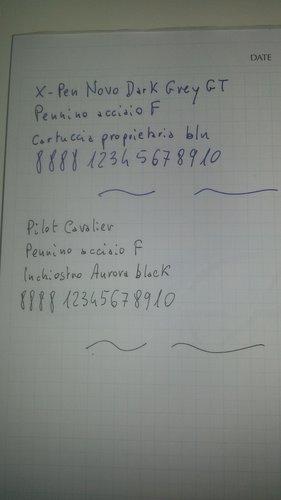 DATE
X-Pen Novo Dark Grey GT
Pennino acciaio F
Cartuccia proprietaria blu
8888 12345678910
Pilot Cavalier
Pennino acciaio F
Inchiostro Aurora black
8888 12345678910